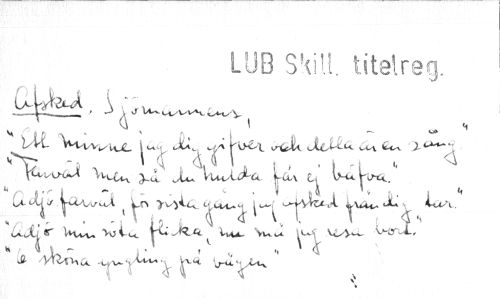 LUB Skill. titelreg.
Afsked. Sjömannens,
"Ett minne jag dig gifver och detta är en sång"
"Farväl men så du hulda får ej bäfva."
"Adjö farväl, för sista gång jag afsked från dig tar."
"Adjö min söta flicka, nu må jag resa bort."
"O sköna yngling på vägen"